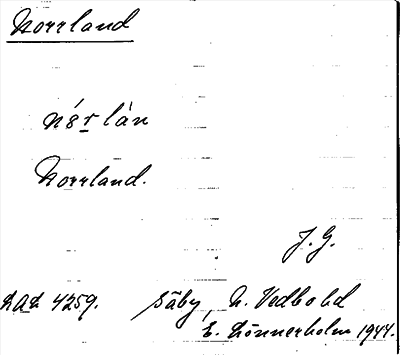 Norrland
nórlàn
Norrland.
J.G.
LAL 4259. Säby, N. Vedbobd
E. Lönnerholm 1944.